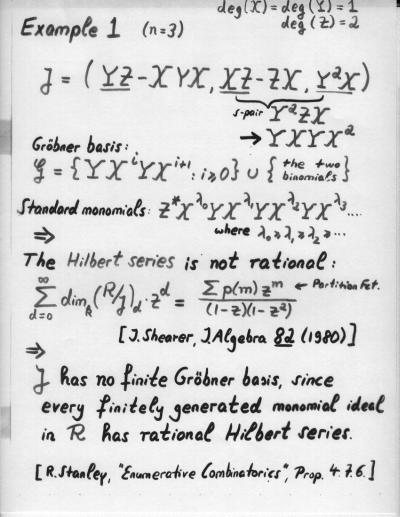 deg(X) = deg(Y) = 1
deg(Z) = 2
Example 1 (n=3)
J = ( YZ - XYX, XZ - ZX, Y²X )
s-pair Y²ZX
→ YXYX²
Gröbner basis:
G = { YXⁱYXⁱ⁺¹ : i≥0 } ∪ { the two binomials }
Standard monomials: Z*X^λ₀YX^λ₁YX^λ₂YX^λ₃....
⇒ where λ₀ ≥ λ₁ ≥ λ₂ ≥ ...
The Hilbert series is not rational:
∑_{d=0}^{∞} dim_k (R/J)_d · z^d = ∑ p(m) z^m / (1-z)(1-z²) ← Partition Fct.
[J. Shearer, J. Algebra 82 (1980)]
⇒
J has no finite Gröbner basis, since
every finitely generated monomial ideal
in R has rational Hilbert series.
[R. Stanley, "Enumerative Combinatorics", Prop. 4.7.6.]